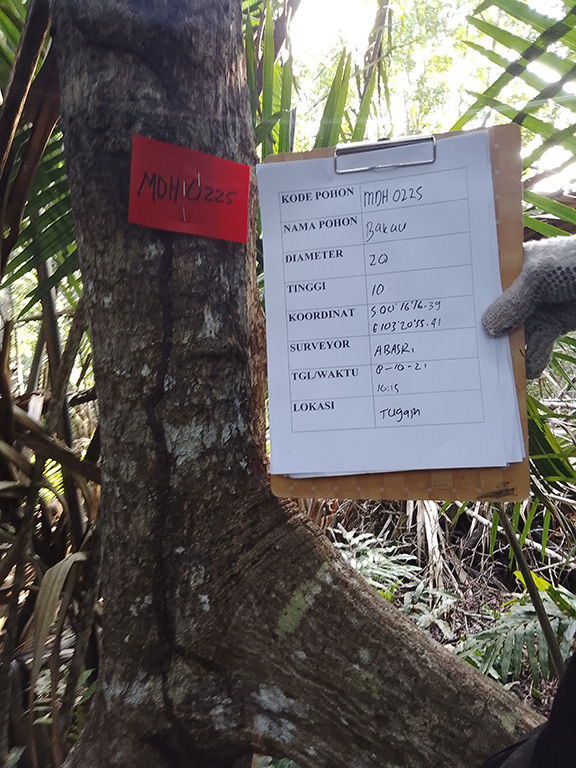 MDH 0225
KODE POHON MDH 0225
NAMA POHON Bakau
DIAMETER 20
TINGGI 10
KOORDINAT S 00°16'76.39
E 103°20'55.41
SURVEYOR ABASRI
TGL/WAKTU 8-10-21
10:15
LOKASI Tugam